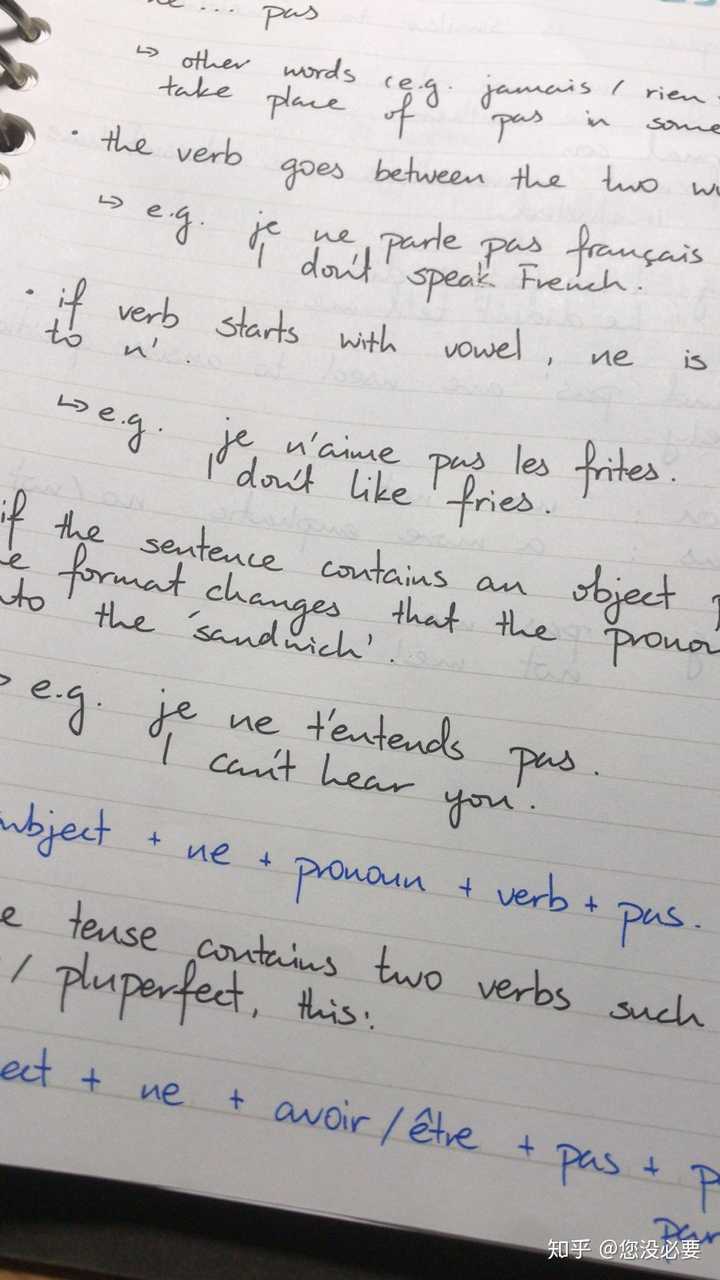 ne ... pas
↳ other words (e.g. jamais / rien
take place of pas in some
• the verb goes between the two
↳ e.g. je ne parle pas français
I don't speak French.
• if verb starts with vowel, ne is
to n'.
↳ e.g. je n'aime pas les frites.
I don't like fries.
if the sentence contains an object
format changes that the
the 'sandwich'.
e.g. je ne t'entends pas.
I can't hear you.
+ ne + pronoun + verb + pas.
tense contains two verbs such
/ pluperfect, this:
+ ne + avoir / être + pas +
知乎 @您没必要